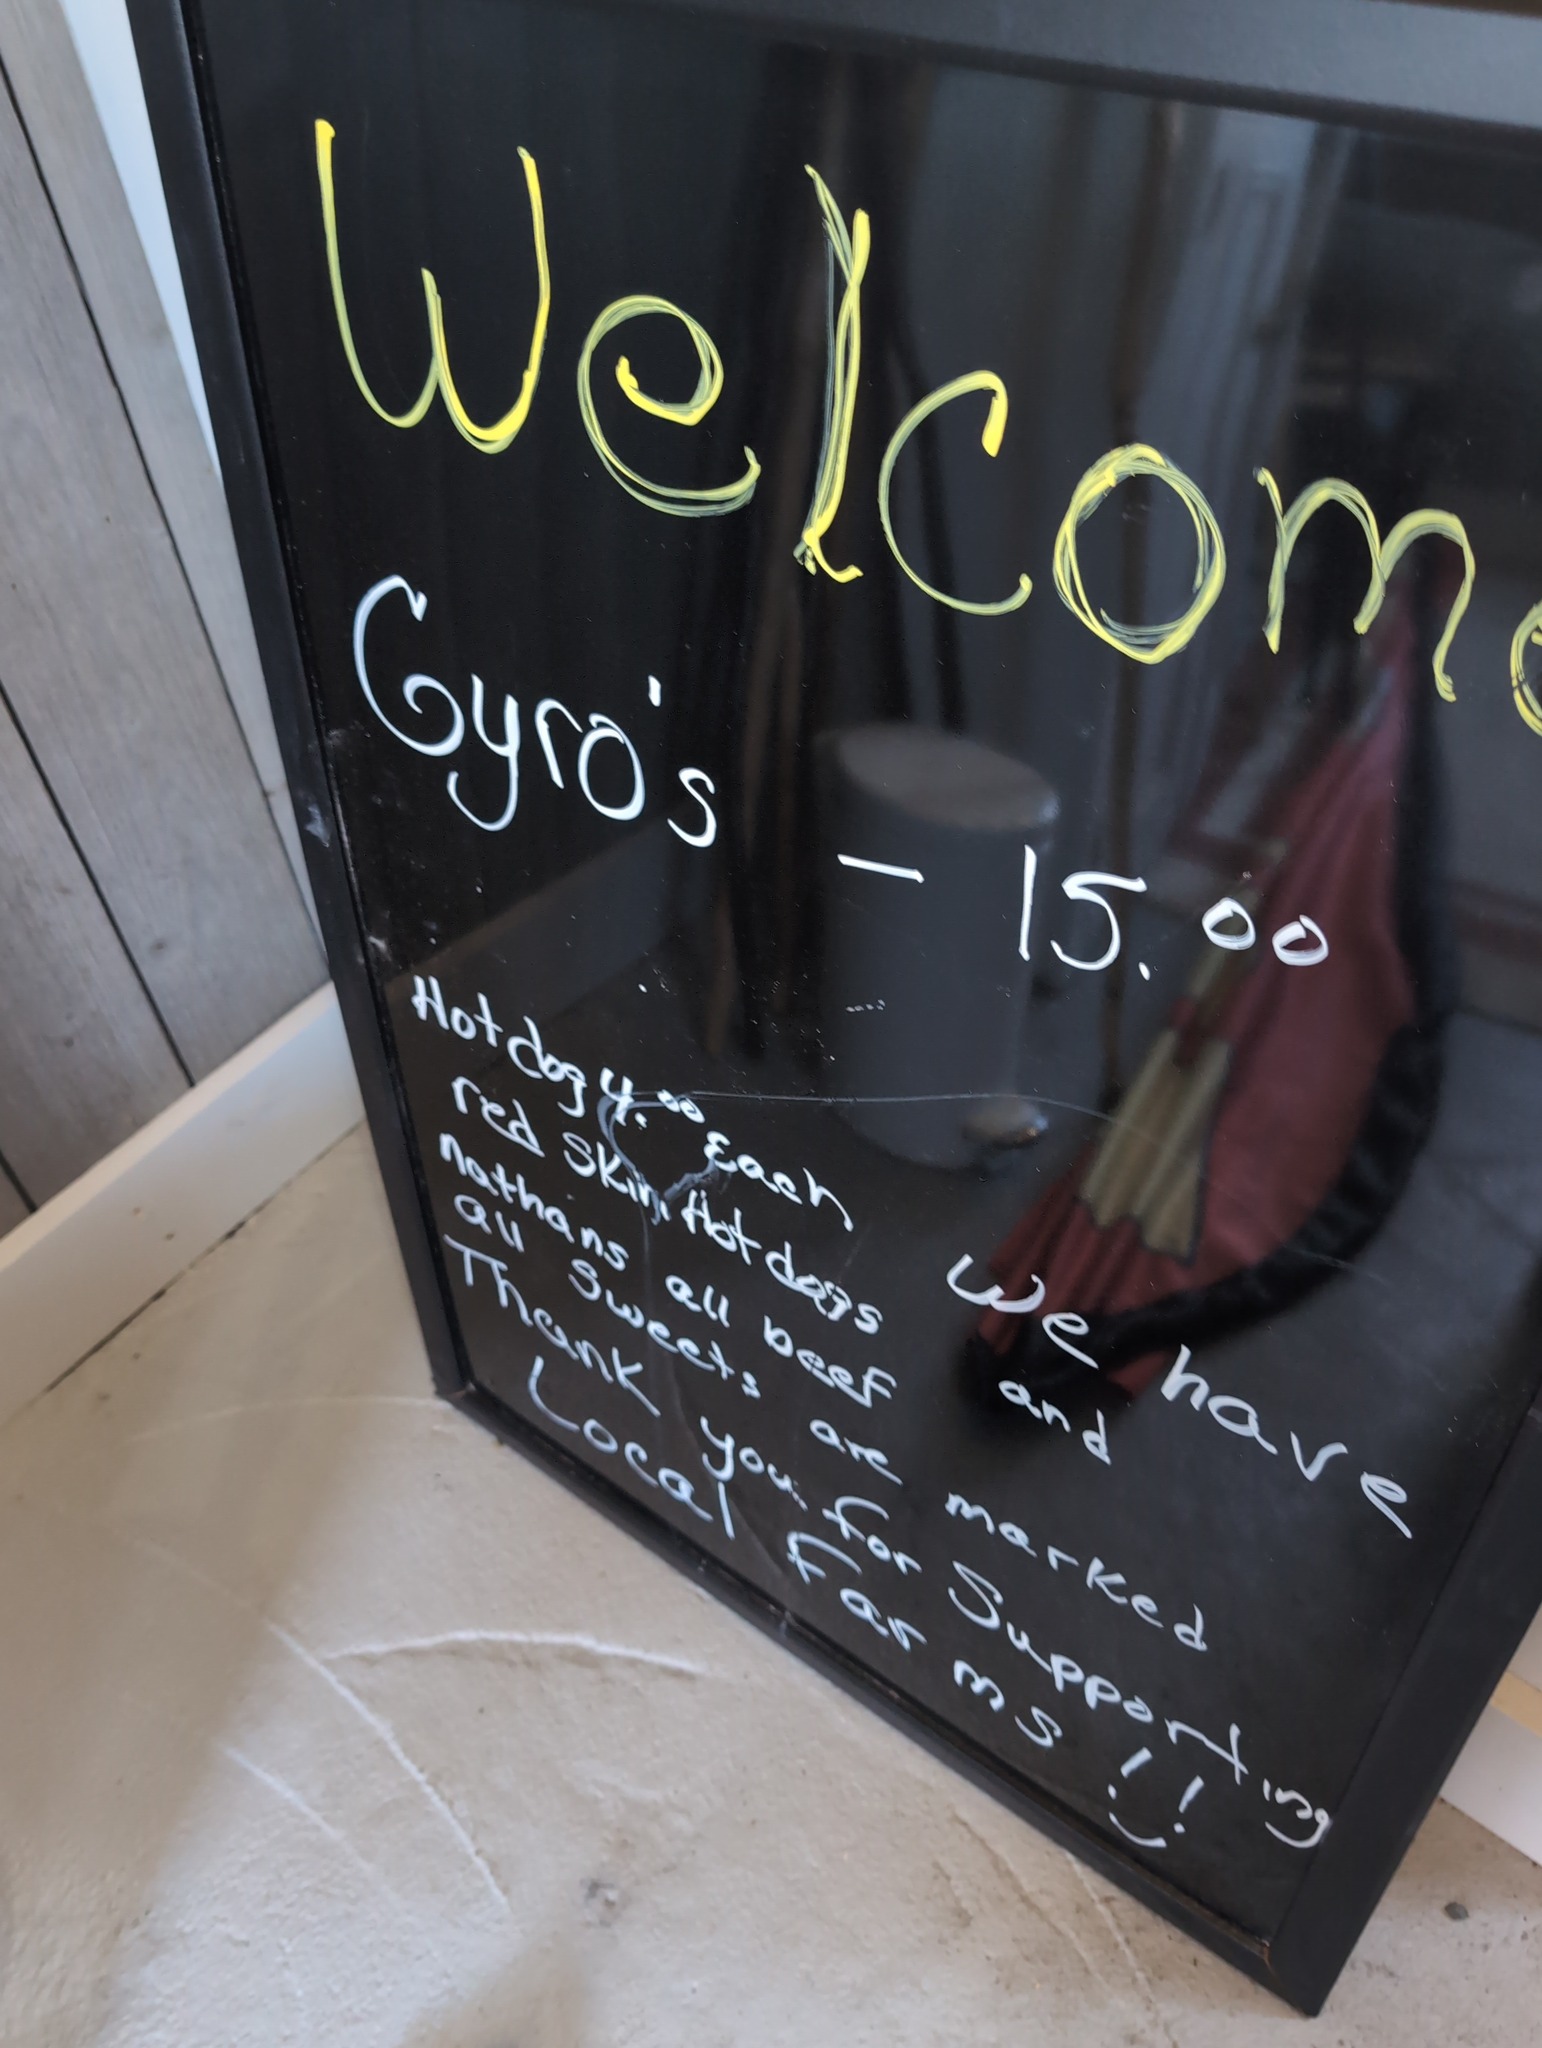 Welcome
Gyro's - 15.00
Hotdog 4.00 Each We have
red skin Hotdogs and
nathans all beef
all sweets are marked
Thank you for Supporting
Local Farms!!